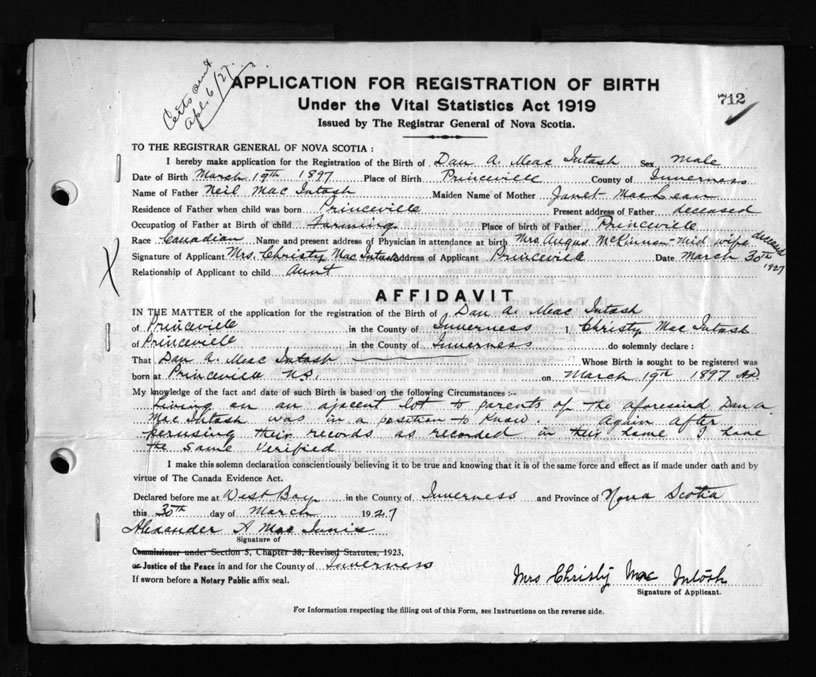 Certs sent
Apl. 6/27.
APPLICATION FOR REGISTRATION OF BIRTH
712
Under the Vital Statistics Act 1919
Issued by The Registrar General of Nova Scotia.
TO THE REGISTRAR GENERAL OF NOVA SCOTIA :
I hereby make application for the Registration of the Birth of Dan A. Mac Intosh Sex Male
Date of Birth March 19th 1897 Place of Birth Princeville County of Inverness
Name of Father Neil Mac Intosh Maiden Name of Mother Janet MacLean
Residence of Father when child was born Princeville Present address of Father deceased
Occupation of Father at Birth of child Farming Place of birth of Father Princeville
Race Canadian Name and present address of Physician in attendance at birth Mrs. Angus McKinnon - Mid wife deceased
Signature of Applicant Mrs. Christy Mac Intosh Address of Applicant Princeville Date March 30th 1927
Relationship of Applicant to child Aunt
X
AFFIDAVIT
IN THE MATTER of the application for the registration of the Birth of Dan A. Mac Intosh
of Princeville in the County of Inverness I, Christy Mac Intosh
of Princeville in the County of Inverness do solemnly declare :
That Dan A. Mac Intosh Whose Birth is sought to be registered was
born at Princeville N.S. on March 19th 1897 A.D.
My knowledge of the fact and date of such Birth is based on the following Circumstances :-
Living on an ajacent lot to parents of the aforesaid Dan A.
Mac Intosh was in a position to know. Again after
perusing their records as recorded in their home I have
the same verified
I make this solemn declaration conscientiously believing it to be true and knowing that it is of the same force and effect as if made under oath and by
virtue of The Canada Evidence Act.
Declared before me at West Bay in the County of Inverness and Province of Nova Scotia
this 30th day of March 1927
Alexander A Mac Innis
Signature of
Commissioner under Section 5, Chapter 38, Revised Statutes, 1923,
or Justice of the Peace in and for the County of Inverness
If sworn before a Notary Public affix seal.
Mrs Christy Mac Intosh
Signature of Applicant.
For Information respecting the filling out of this Form, see Instructions on the reverse side.